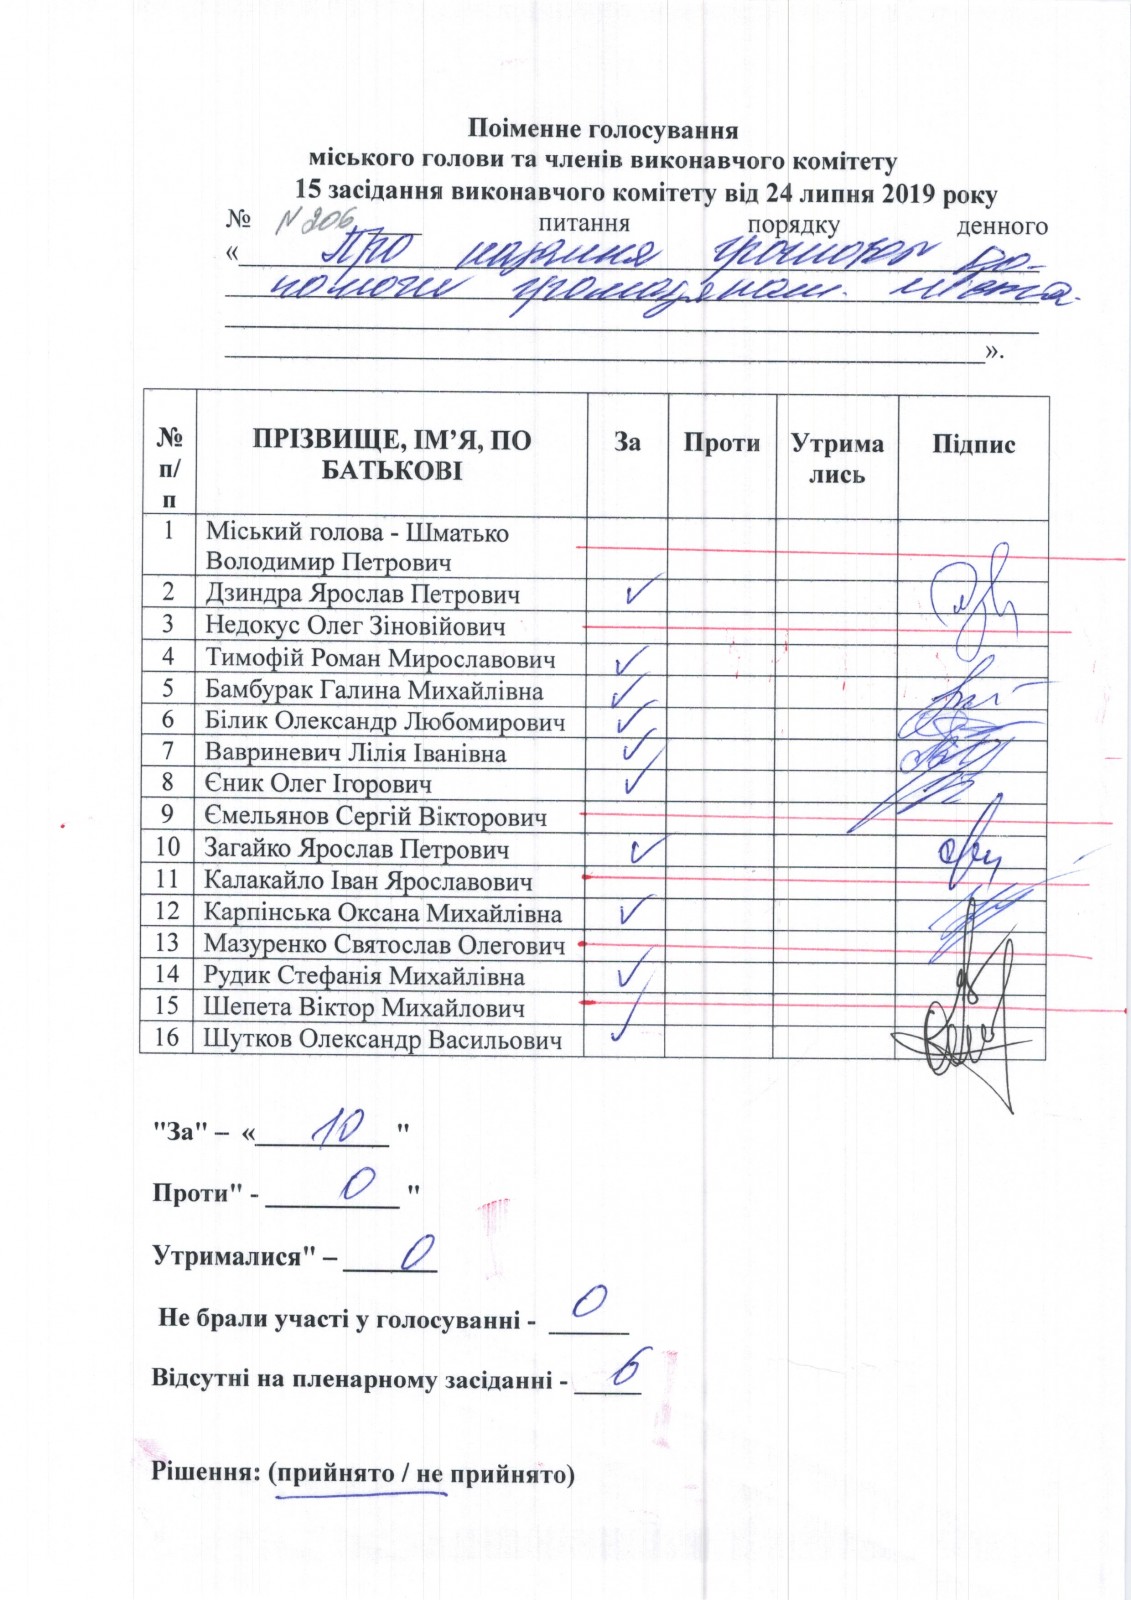 Поіменне голосування
міського голови та членів виконавчого комітету
15 засідання виконавчого комітету від 24 липня 2019 року
№ N 206 питання порядку денного
« Про надання грошової до-
помоги громадянам міста.
».
№ п/п ПРІЗВИЩЕ, ІМ’Я, ПО БАТЬКОВІ За Проти Утрима лись Підпис
1 Міський голова - Шматько
Володимир Петрович
2 Дзиндра Ярослав Петрович ✓
3 Недокус Олег Зіновійович
4 Тимофій Роман Мирославович ✓
5 Бамбурак Галина Михайлівна ✓
6 Білик Олександр Любомирович ✓
7 Вавриневич Лілія Іванівна ✓
8 Єник Олег Ігорович ✓
9 Ємельянов Сергій Вікторович
10 Загайко Ярослав Петрович ✓
11 Калакайло Іван Ярославович
12 Карпінська Оксана Михайлівна ✓
13 Мазуренко Святослав Олегович
14 Рудик Стефанія Михайлівна ✓
15 Шепета Віктор Михайлович
16 Шутков Олександр Васильович ✓
"За" – « 10 "
Проти" - 0 "
Утрималися" – 0
Не брали участі у голосуванні - 0
Відсутні на пленарному засіданні - 6
Рішення: (прийнято / не прийнято)